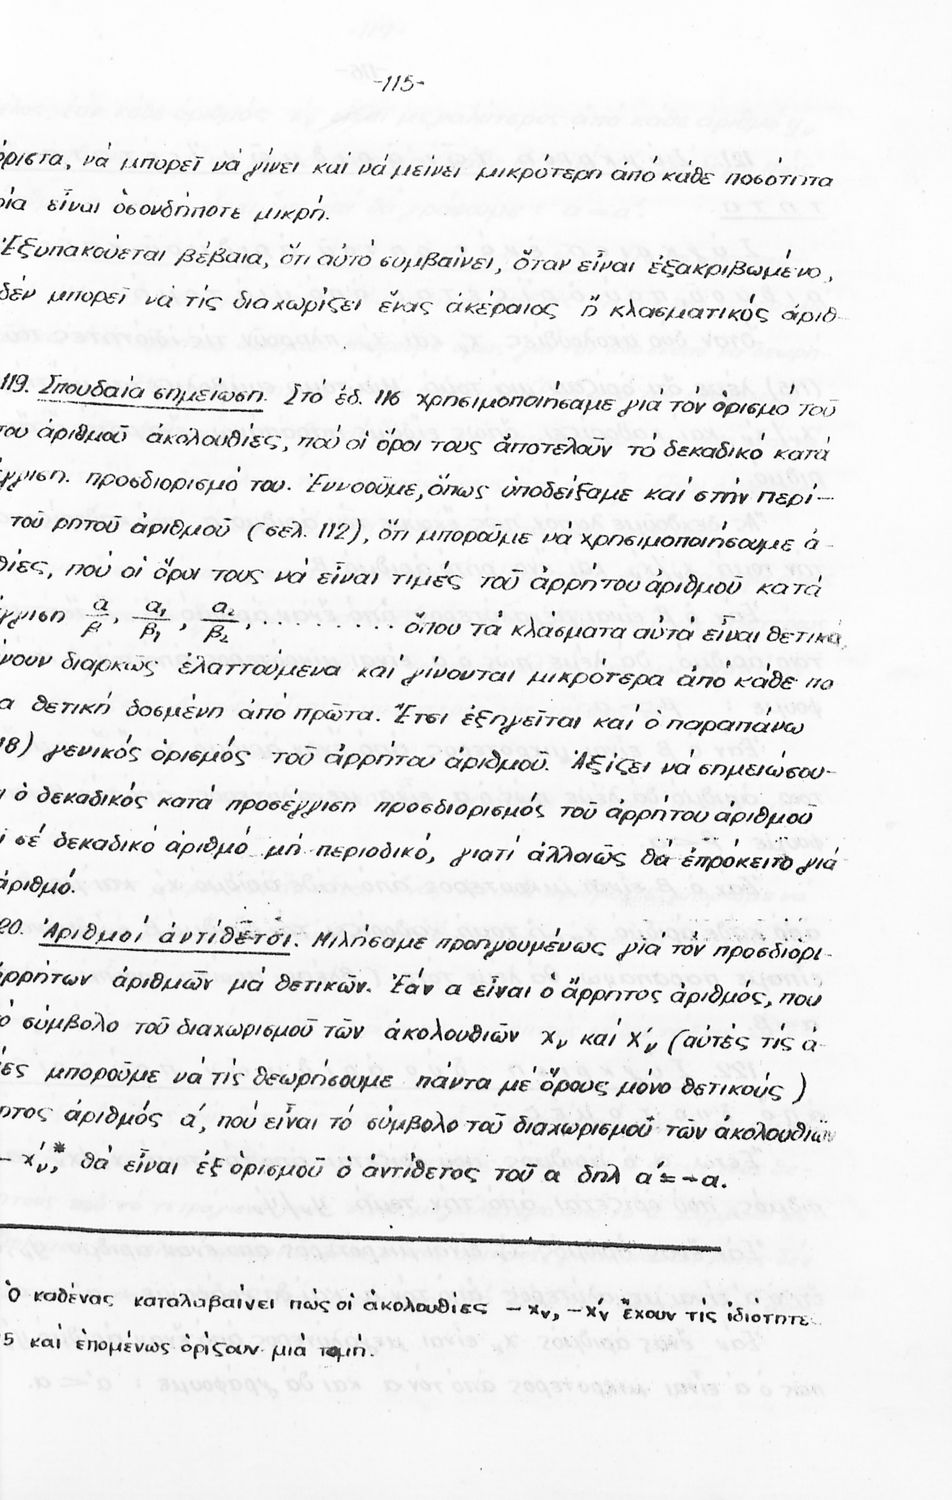 -115-
όριστα, νά μπορεῖ νά γίνει καί νά μείνει μικρότερη ἀπό κάθε ποσότητα
οία εἶναι ὁσονδήποτε μικρή.
Ἐξυπακούεται βέβαια, ὅτι αὐτό συμβαίνει, ὅταν εἶναι ἐξακριβωμένο,
δέν μπορεῖ νά τίς διαχωρίζει ἕνας ἀκέραιος ἤ κλασματικός ἀριθ-
119. Σπουδαία σημείωση. Στό ἐδ. 116 χρησιμοποιήσαμε γιά τόν ὁρισμό τοῦ
του ἀριθμοῦ ἀκολουθίες, πού οἱ ὅροι τους ἀποτελοῦν τό δεκαδικό κατά
έγγιση. προσδιορισμό του. Ἐννοοῦμε, ὅπως ὑποδείξαμε καί στήν περί-
τοῦ ρητοῦ ἀριθμοῦ (σελ. 112), ὅτι μποροῦμε νά χρησιμοποιήσουμε ἀ-
θίες, πού οἱ ὅροι τους νά εἶναι τιμές τοῦ ἀρρήτου ἀριθμοῦ κατά
έγγιση α/β, α₁/β₁, α₂/β₂, ........ ὅπου τά κλάσματα αὐτά εἶναι θετικά,
νουν διαρκῶς ἐλαττούμενα καί γίνονται μικρότερα ἀπό κάθε πο
α θετική δοσμένη ἀπό πρῶτα. Ἔτσι ἐξηγεῖται καί ὁ παραπάνω
18) γενικός ὁρισμός τοῦ ἀρρήτου ἀριθμοῦ. Ἀξίζει νά σημειώσου-
ι ὁ δεκαδικός κατά προσέγγιση προσδιορισμός τοῦ ἀρρήτου ἀριθμοῦ
ῖ σέ δεκαδικό ἀριθμό μή περιοδικό, γιατί ἀλλοιῶς θά ἐπρόκειτο γιά
ἀριθμό.
20. Ἀριθμοί ἀντίθετοι. Μιλήσαμε προηγουμένως γιά τόν προσδιορι-
ἀρρήτων ἀριθμῶν μά θετικῶν. Ἐάν α εἶναι ὁ ἄρρητος ἀριθμός, που
ό σύμβολο τοῦ διαχωρισμοῦ τῶν ἀκολουθιῶν χᵥ καί χ΄ᵥ (αὐτές τίς ἀ-
ίες μποροῦμε νά τίς θεωρήσουμε πάντα μέ ὅρους μόνο θετικούς)
ητος ἀριθμός α΄, πού εἶναι τό σύμβολο τοῦ διαχωρισμοῦ τῶν ἀκολουθιῶν
- χ΄ᵥ,* θά εἶναι ἐξ ὁρισμοῦ ὁ ἀντίθετος τοῦ α δηλ α΄= -α.
Ὁ καθένας καταλαβαίνει πώς οἱ ἀκολουθίες -χᵥ, -χ΄ᵥ ἔχουν τίς ἰδιότητε
5 καί ἑπομένως ὁρίζουν μιά τομή.